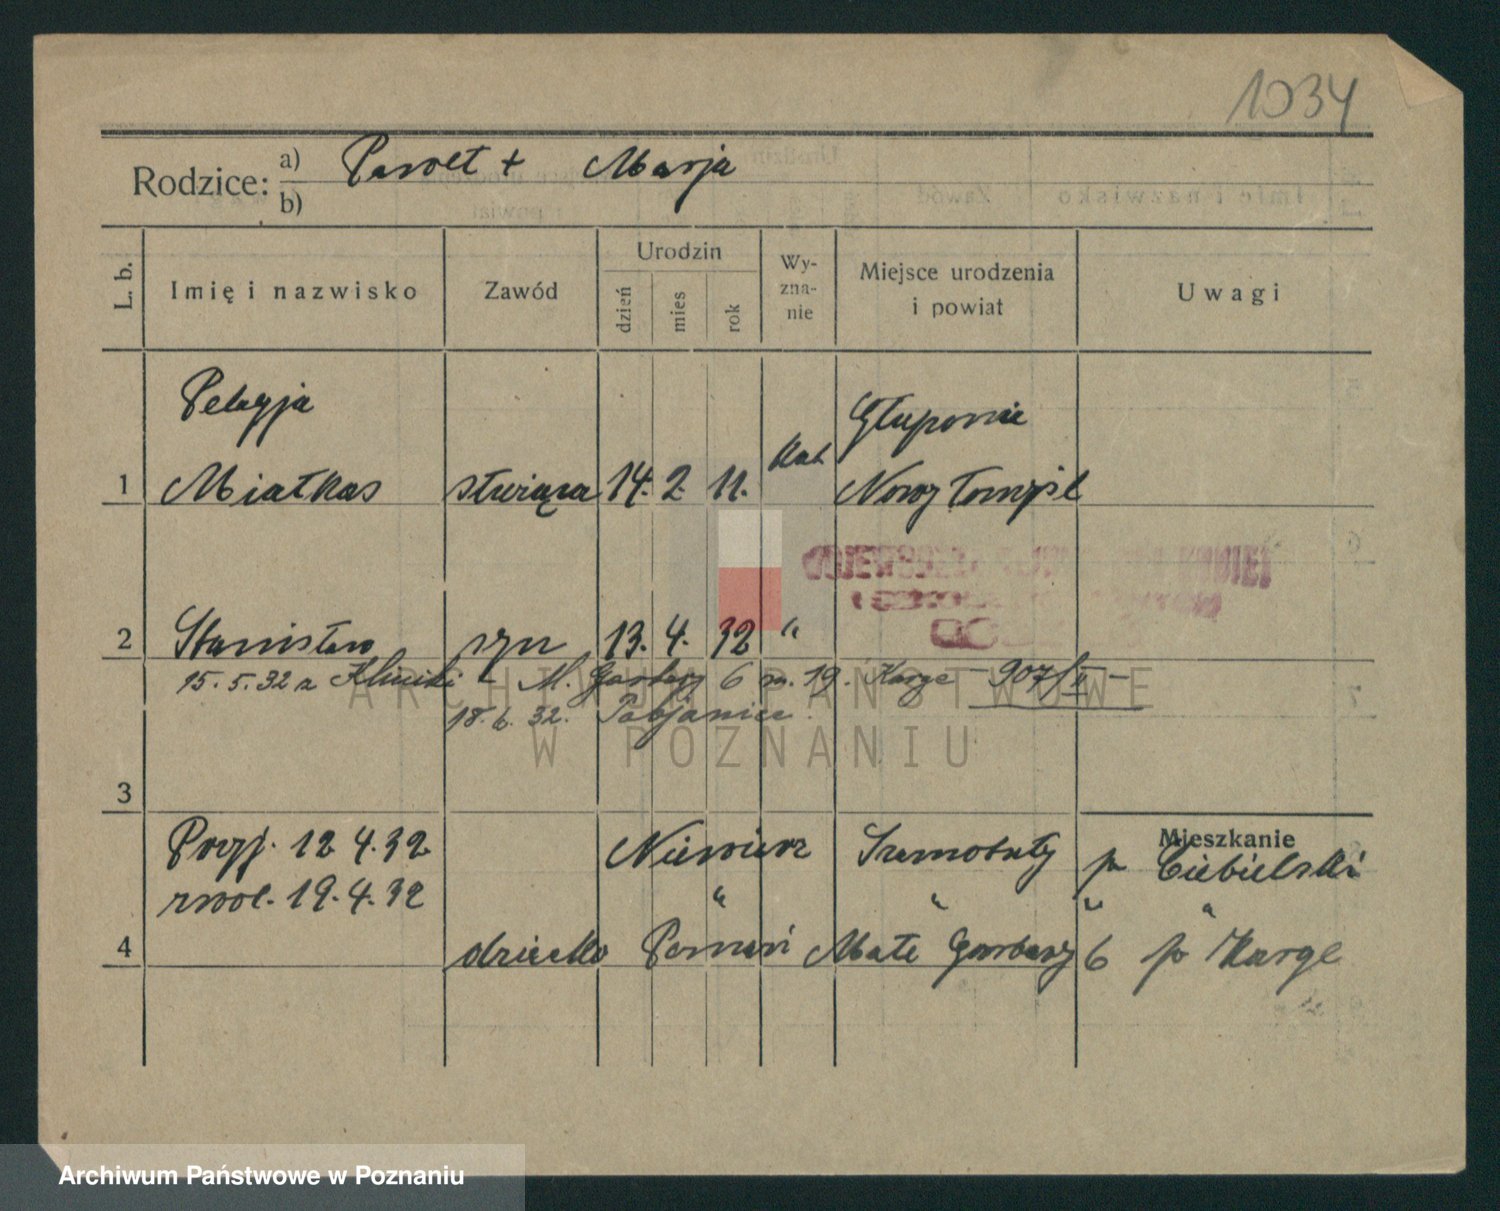 1034
Rodzice: a) Paweł + Marja
b)
L. b.
Imię i nazwisko
Zawód
Urodzin
dzień
mies
rok
Wy-
zna-
nie
Miejsce urodzenia
i powiat
Uwagi
Pelagja
Głuponie
kat
1 Miałkas służąca 14. 2. 11. Nowy Tomyśl
2 Stanisław syn 13. 4. 32 "
15. 5. 32 z Kliniki - M. Garbary 6 m. 19. Karge - 907/II -
18. 6. 32. Pabjanice
3
Mieszkanie
Przyj. 12 4. 32 Niewierz Szamotuły p Ciebielski
zwol. 19. 4. 32 " " " "
4 dziecko Poznań Małe Garbary 6 p Karge
ARCHIWUM PAŃSTWOWE
W POZNANIU
Archiwum Państwowe w Poznaniu